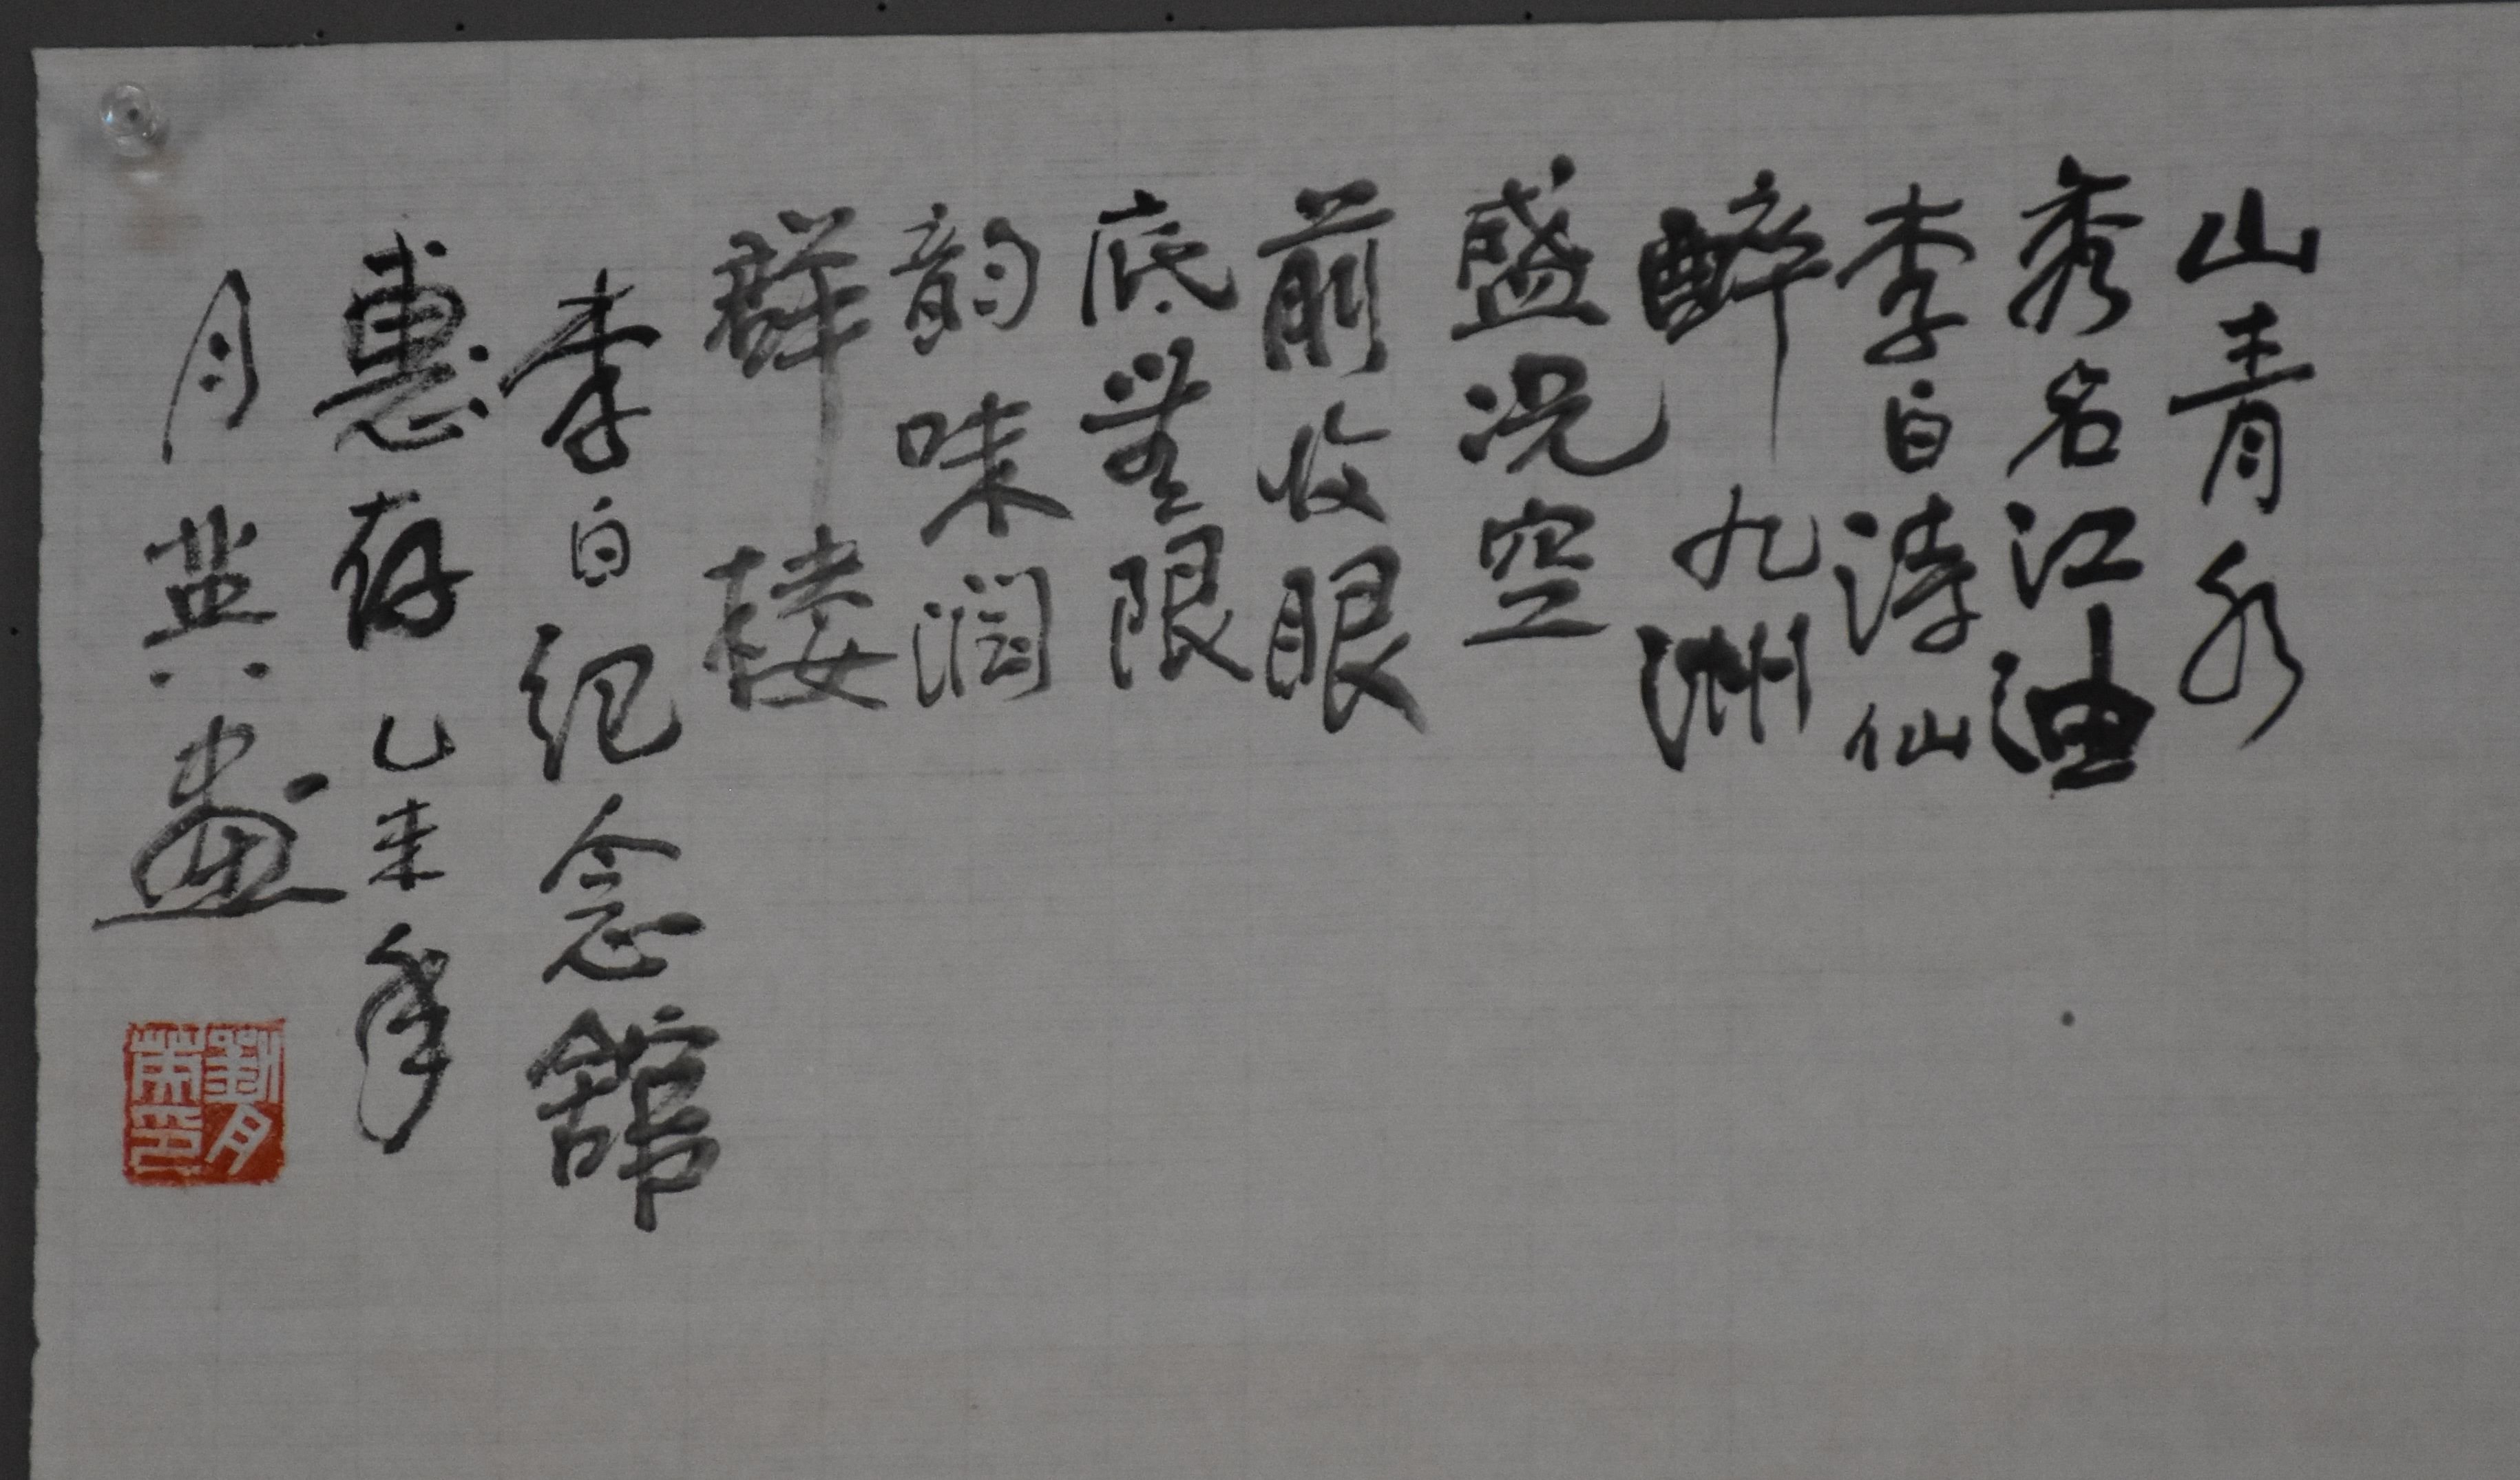 山青水
秀名江油
李白诗仙
醉九洲
盛况空
前收眼
底無限
韵味润
群楼
李白纪念馆
惠存乙未年
月其画